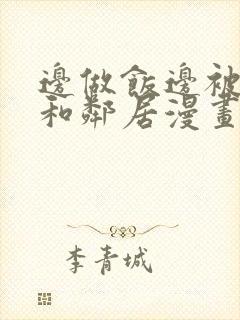 邊做飯邊被
和鄰居漫畫
李青城